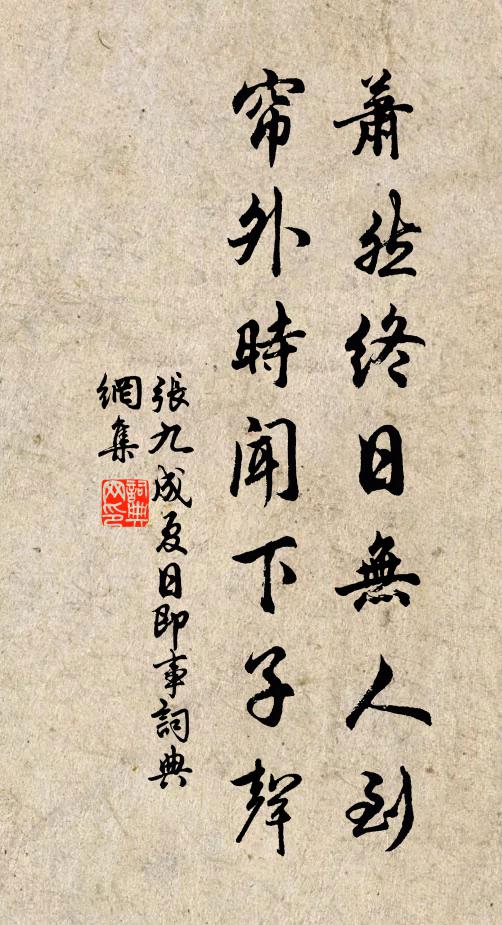 蕭然終日無人到
帘外時聞下子聲
張九成夏日即事詞典
網集
詞典
网印